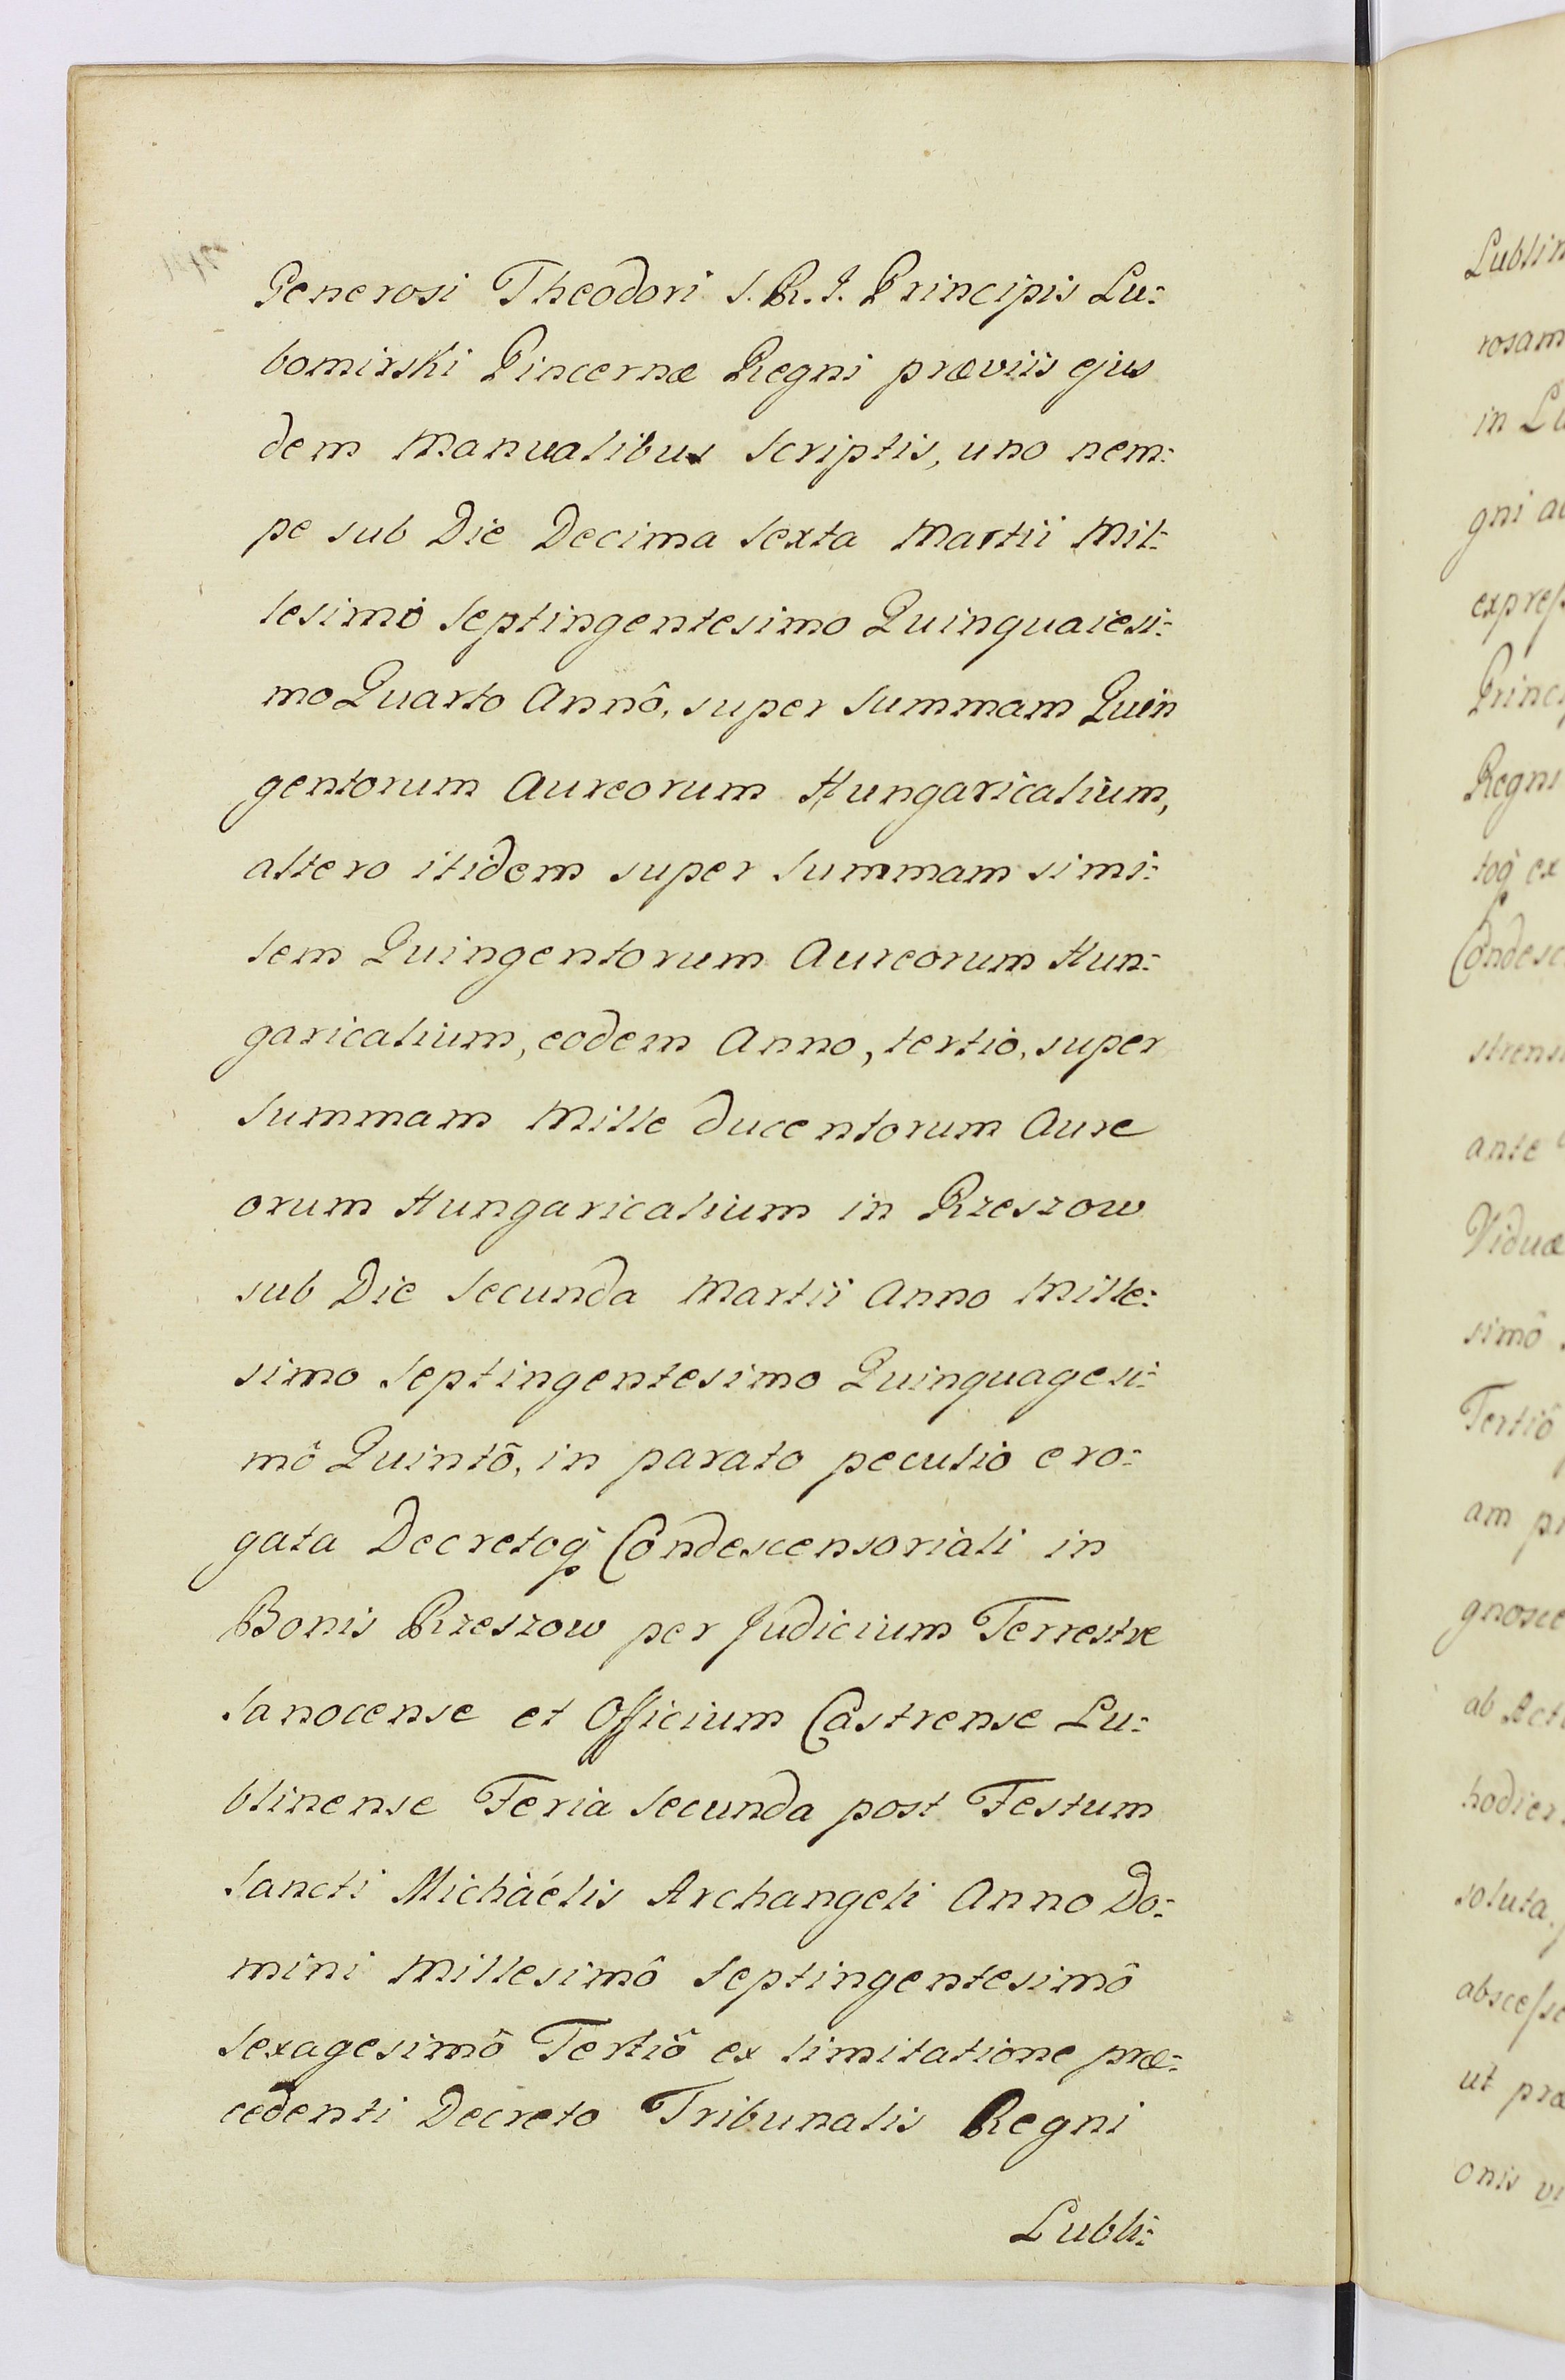 Generosi Theodori S. R. I. Principis Lu:
bomirski Pincernæ Regni præviis ejus
dem Manualibus Scriptis, uno nem:
pe sub Die Decima Sexta Martii Mil:
lesimo Septingentesimo Quinquaiesi:
mo Quarto Annô, super Summam Quin
gentorum Aureorum Hungaricalium,
altero itidem super Summam simi:
lem Quingentorum Aureorum Hun:
garicalium, eodem Anno, tertio, super
Summam Mille ducentorum Aure
orum Hungaricalium in Rzeszow
sub Die Secunda Martii Anno Mille:
simo Septingentesimo Quinquagesi:
mô Quintô, in parato peculio ero:
gata Decretoq̃ Condescensoriali in
Bonis Rzeszow per Judicium Terrestre
Sanocense et Officium Castrense Lu:
blinense Feria Secunda post Festum
Sancti Michaélis Archangeli Anno Do:
mini Millesimô Septingentesimô
Sexagesimô Tertiô ex limitatione præ:
cedenti Decreto Tribunalis Regni
Lubli:
Lublin
rosam
in Lu
gni
expreſs
Princi
Regni
toq̃ ex
Condesc
strens
ante
Viduæ
simô
Tertiô
am
gnosce
ab Act
hodier
soluta
absceſse
ut præ
onis